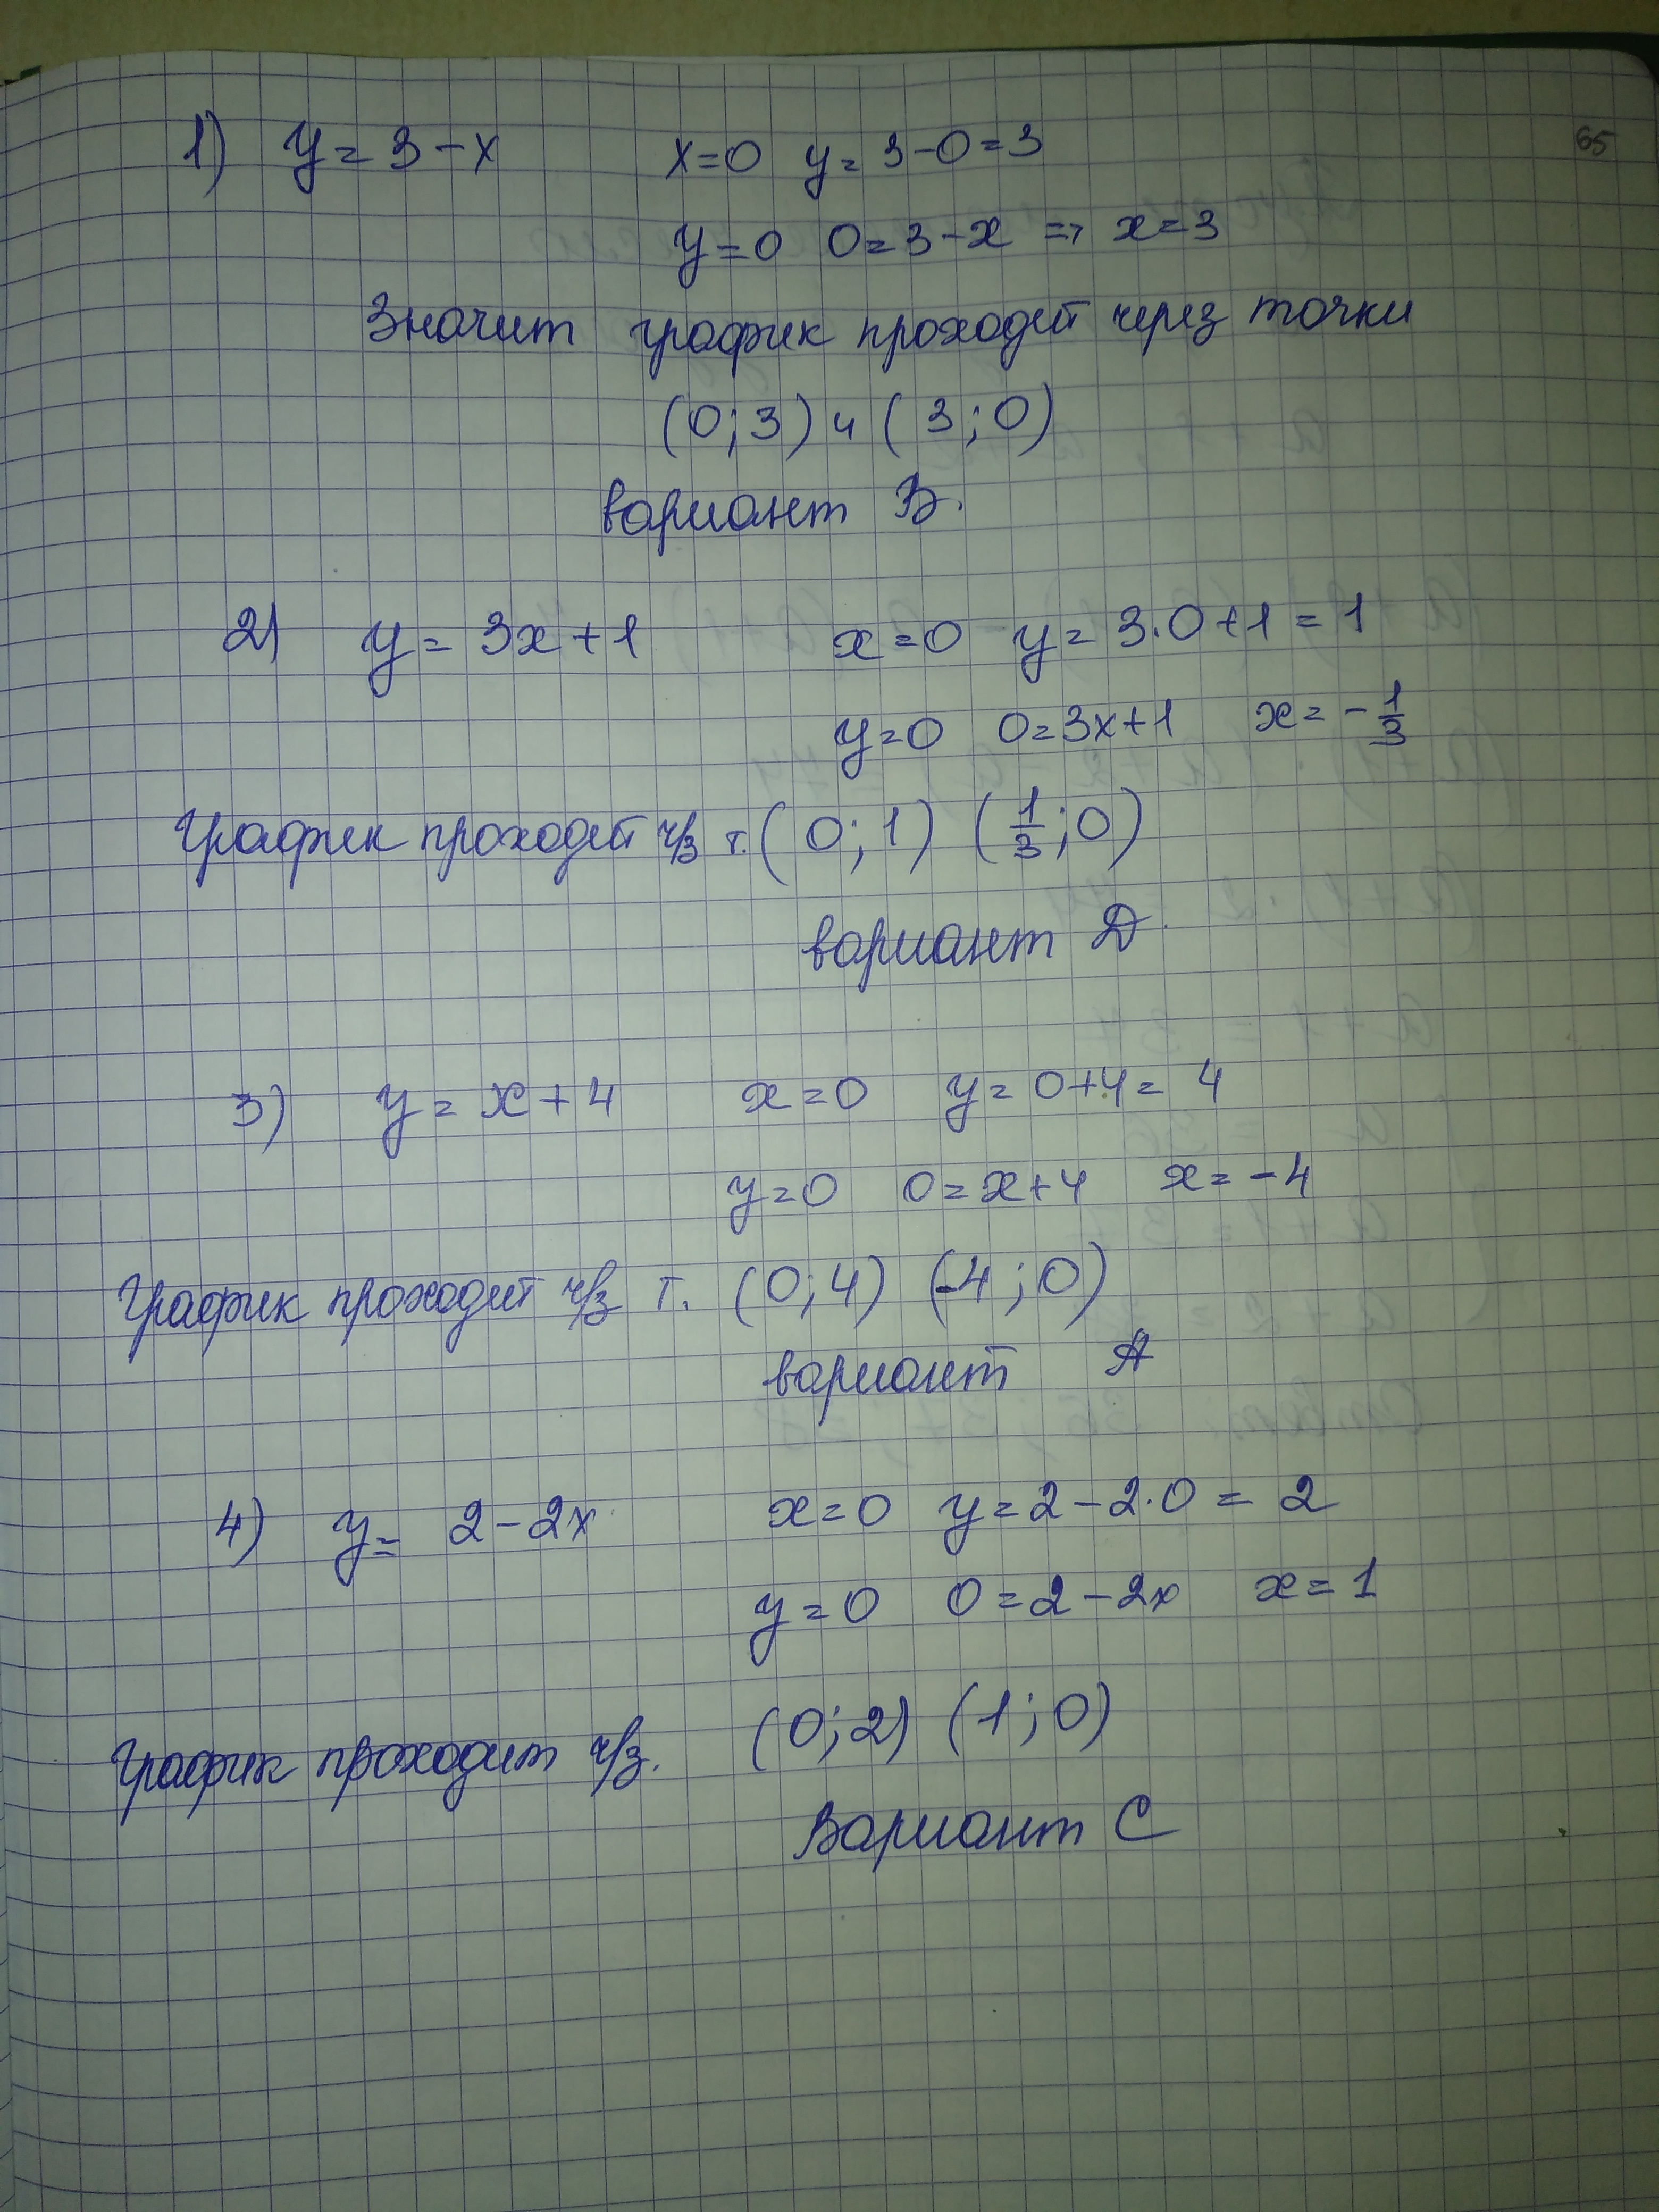 65
1) y = 3 - x x = 0 y = 3 - 0 = 3
y = 0 0 = 3 - x => x = 3
Значит график проходит через точки
(0; 3) и (3; 0)
вариант В.
2) y = 3x + 1 x = 0 y = 3·0 + 1 = 1
y = 0 0 = 3x + 1 x = -1/3
График проходит ч/з т. (0; 1) (1/3; 0)
вариант Д.
3) y = x + 4 x = 0 y = 0 + 4 = 4
y = 0 0 = x + 4 x = -4
График проходит ч/з т. (0; 4) (-4; 0)
вариант А
4) y = 2 - 2x x = 0 y = 2 - 2·0 = 2
y = 0 0 = 2 - 2x x = 1
График проходит ч/з. (0; 2) (1; 0)
Вариант С